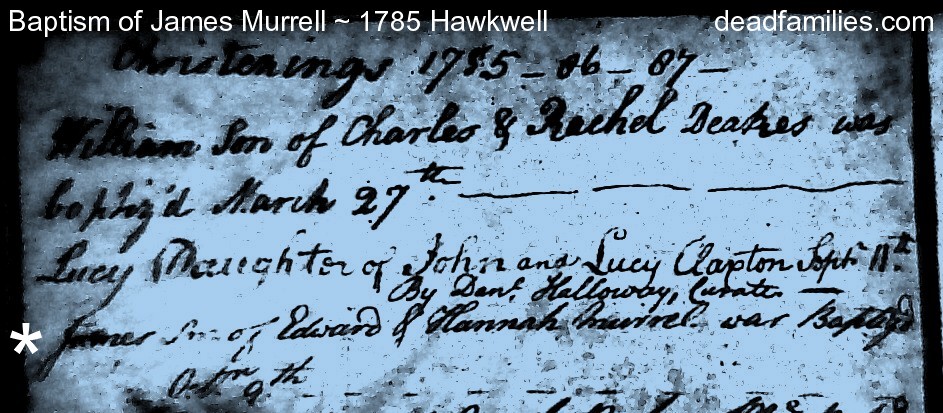 Baptism of James Murrell ~ 1785 Hawkwell
deadfamilies.com
Christenings 1785 - 86 - 87 -
William Son of Charles & Rachel Deakes was
baptiz'd March 27th.
Lucy Daughter of John and Lucy Clapton Sepr. 11th.
By Danl. Halloway, Curate. —
* James Son of Edward & Hannah Murrel was Baptiz'd
9th